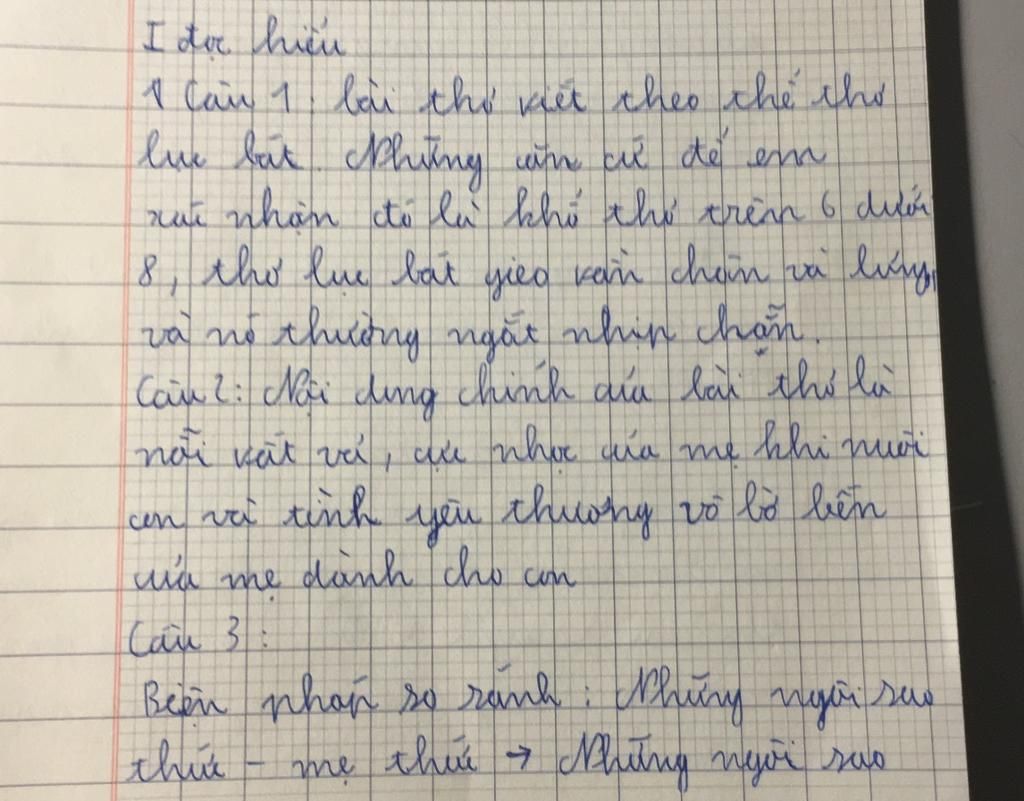 I đọc hiểu
1 Câu 1: bài thơ viết theo thể thơ
lục bát. Những căn cứ để em
xác nhận đó là khổ thơ trên 6 dưới
8, thơ lục bát gieo vần chân và lưng,
và nó thường ngắt nhịp chẵn.
Câu 2: Nội dung chính của bài thơ là
nỗi vất vả, cực nhọc của mẹ khi nuôi
con và tình yêu thương vô bờ bến
của mẹ dành cho con
Câu 3:
Biện pháp so sánh: Những ngôi sao
thức - mẹ thức → Những ngôi sao